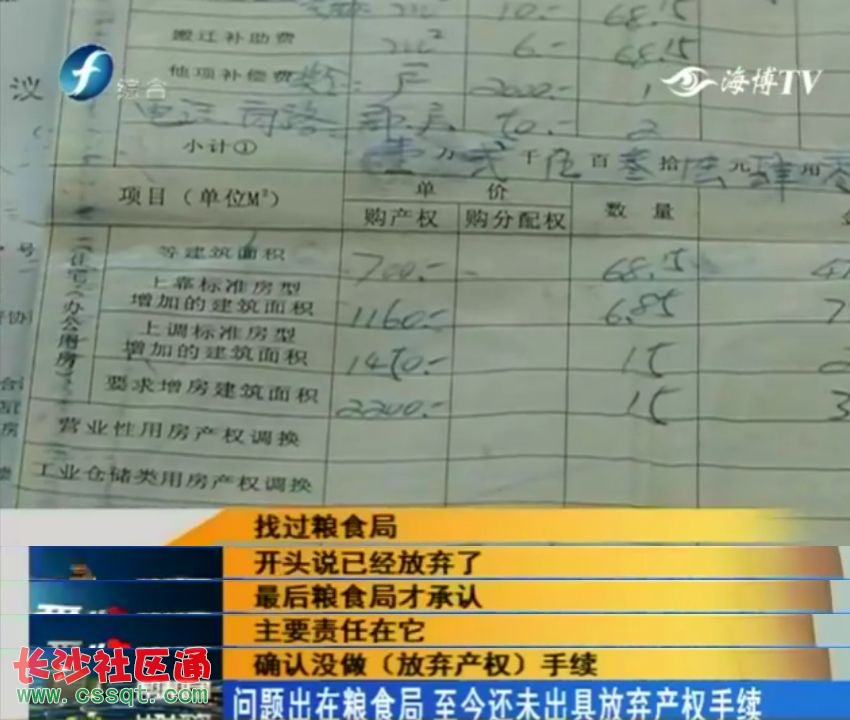 m² 10.- 68.15
搬迁补助费 m² 6.- 68.15
综合
海博TV
议
他项补偿费 户 2000.- 1
50.- 2
小计① 壹万贰千伍百叁拾 元肆角
项目（单位M²） 单价 数量
购产权 购分配权
等建筑面积 700.- 68.15
上靠标准房型
增加的建筑面积 1160.- 6.85
上调标准房型
增加的建筑面积 1450.- 15
要求增房建筑面积 2200.- 15
（住宅）（办公用房）
营业性用房产权调换
工业仓储类用房产权调换
找过粮食局
开头说已经放弃了
最后粮食局才承认
主要责任在它
确认没做（放弃产权）手续
长沙社区通
www.cssqt.com
问题出在粮食局 至今还未出具放弃产权手续